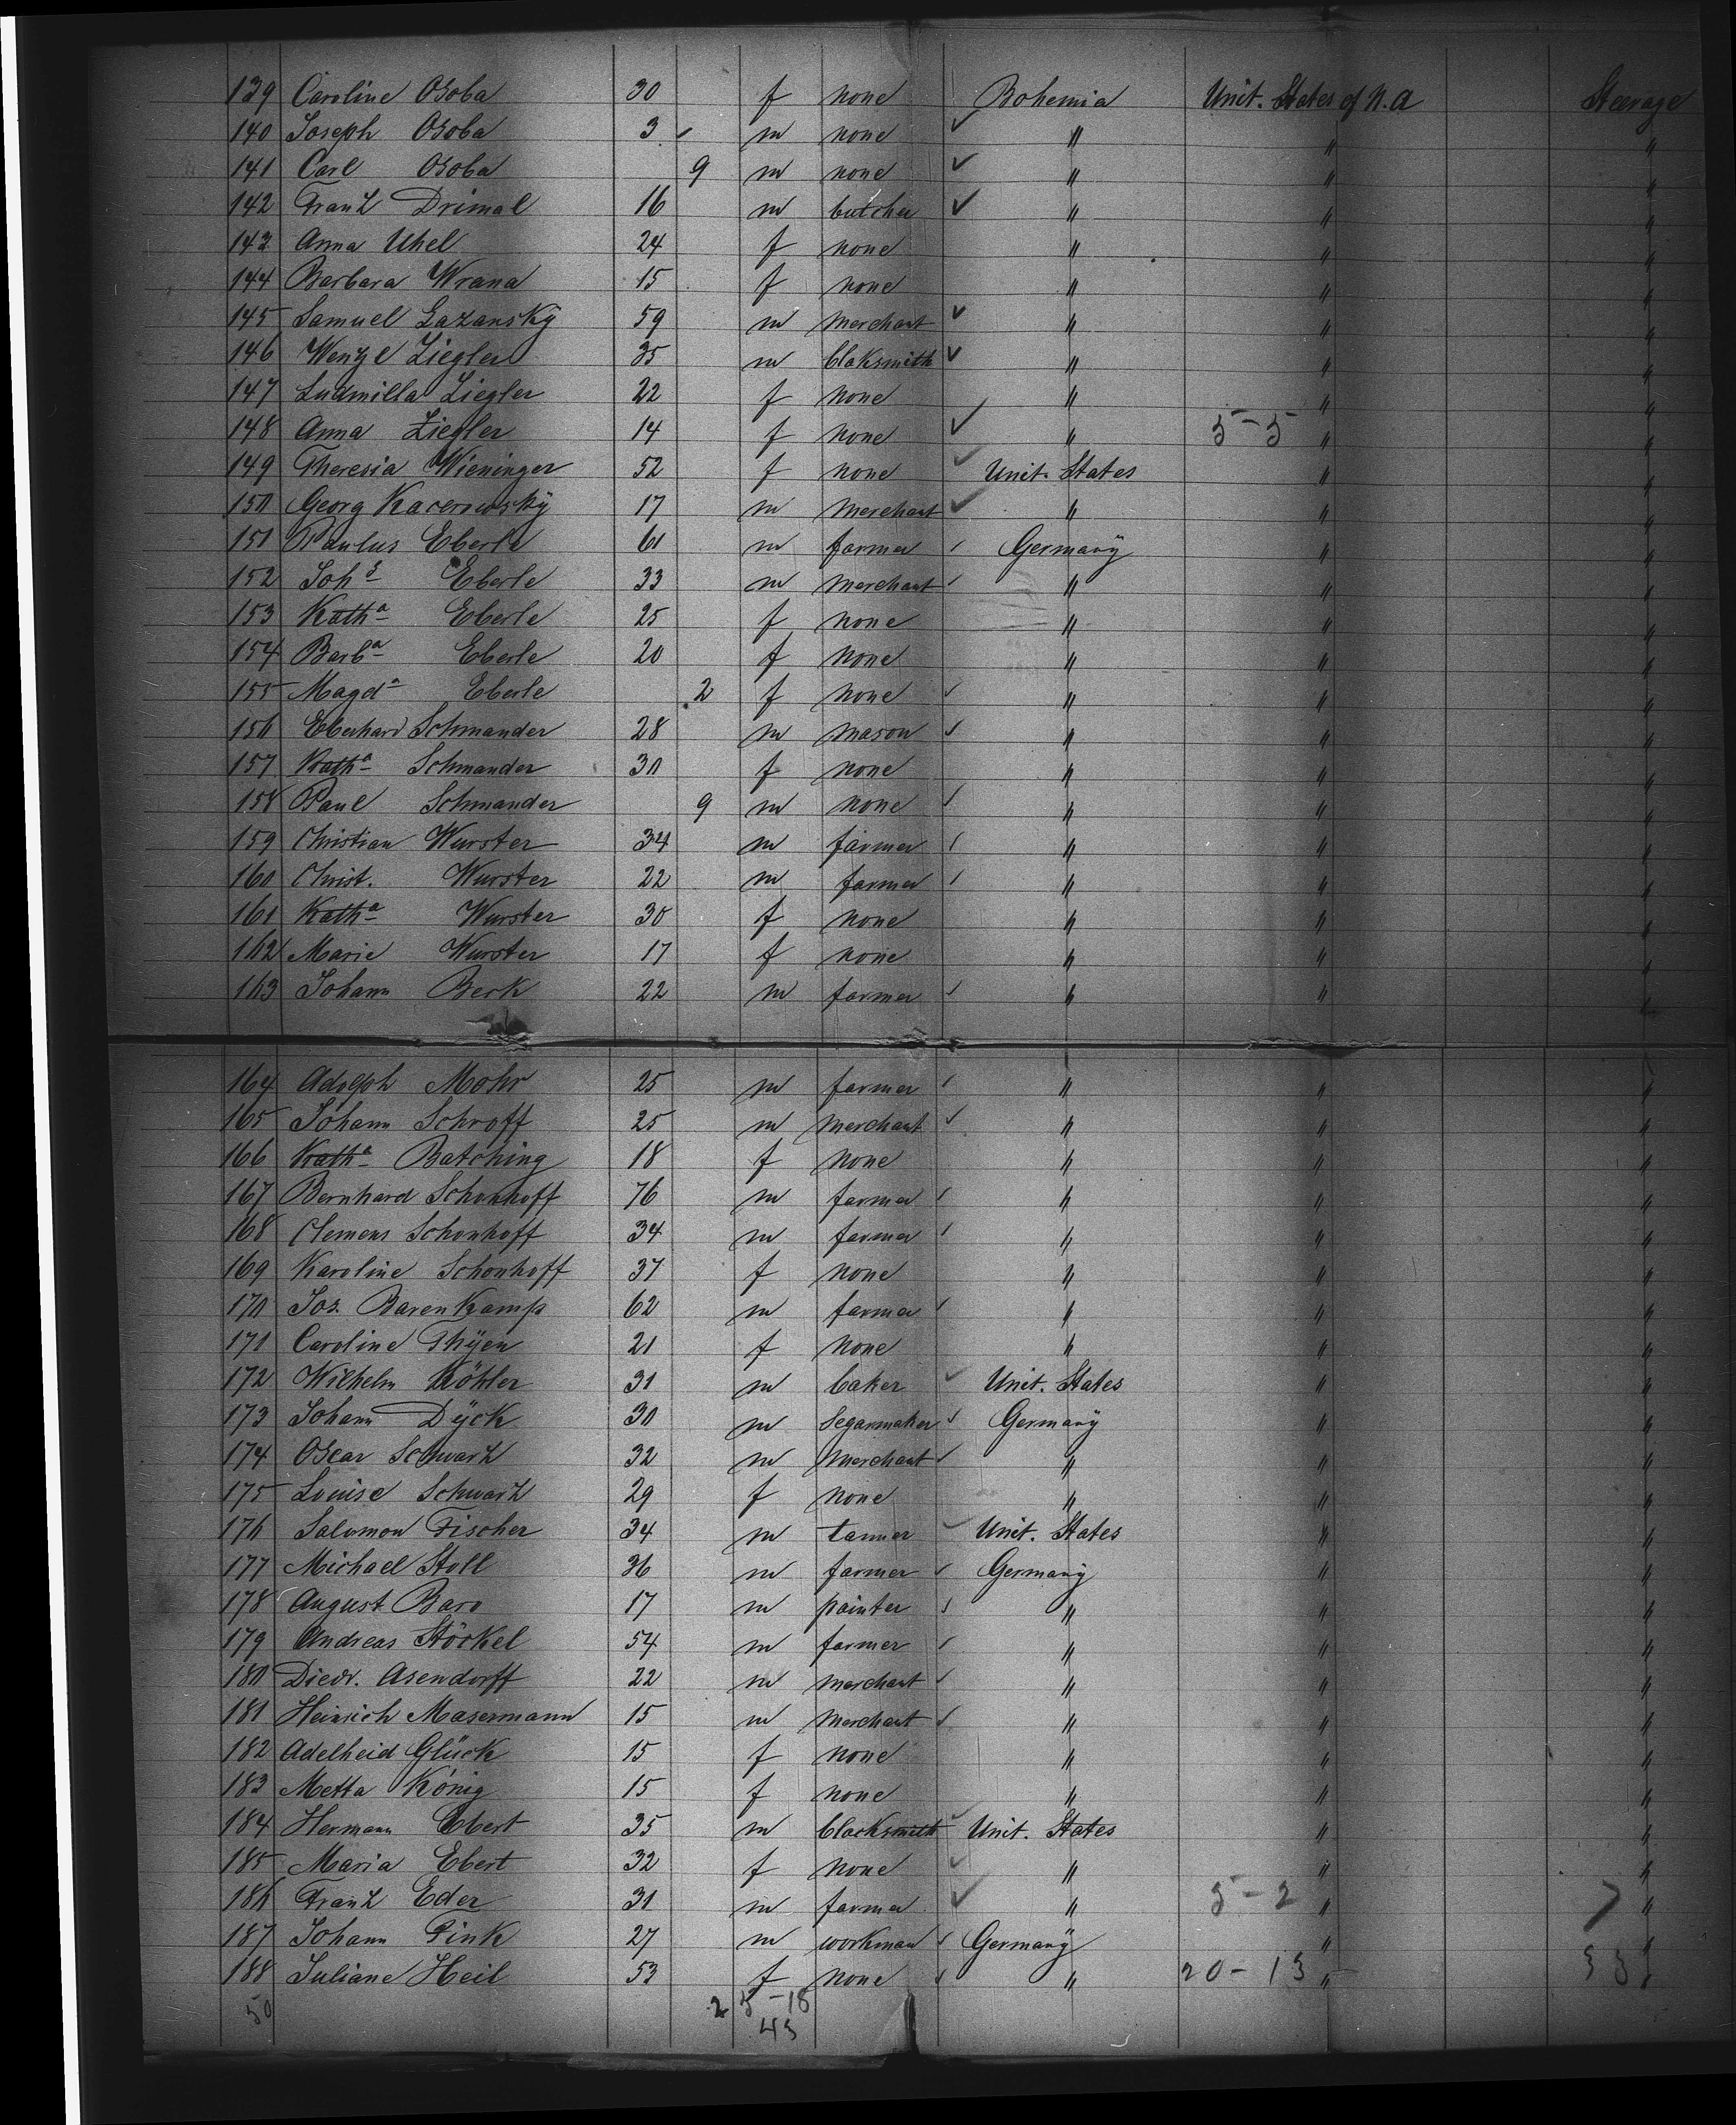 139 Caroline Osoba 30 f none Bohemia Unit. States of N. a Steerage
140 Joseph Osoba 3 m none " " "
141 Carl Osoba 9 m none " " "
142 Franz Drimal 16 m butcher " " "
143 Anna Uhel 24 f none " " "
144 Barbara Wrana 15 f none " " "
145 Samuel Lazansky 59 m merchant " " "
146 Wenzel Ziegler 35 m blaksmith " " "
147 Ludmilla Ziegler 22 f none " " "
148 Anna Ziegler 14 f none " 5-5 " "
149 Theresia Wieninger 52 f none Unit. States " "
150 Georg Kacerowsky 17 m merchant " " "
151 Paulus Eberle 61 m farmer Germany " "
152 Johs Eberle 33 m merchant " " "
153 Katha Eberle 25 f none " " "
154 Barba Eberle 20 f none " " "
155 Magda Eberle 2 f none " " "
156 Eberhard Schmander 28 m mason " " "
157 Katha Schmander 30 f none " " "
158 Paul Schmander 9 m none " " "
159 Christian Wurster 34 m farmer " " "
160 Christ. Wurster 22 m farmer " " "
161 Katha Wurster 30 f none " " "
162 Marie Wurster 17 f none " " "
163 Johann Beck 22 m farmer " "
164 Adolph Mohr 25 m farmer " " "
165 Johann Schroff 25 m merchant " " "
166 Katha Batching 18 f none " " "
167 Bernhard Schonhoff 76 m farmer " " "
168 Clemens Schonhoff 34 m farmer " " "
169 Karoline Schonhoff 37 f none " " "
170 Jos. Barenkamp 62 m farmer " " "
171 Caroline Thÿen 21 f none " " "
172 Wilhelm Köhler 31 m baker Unit. States " "
173 Johann Dÿck 30 m Segarmaker Germany " "
174 Oscar Schwarz 32 m merchant " " "
175 Louise Schwarz 29 f none " " "
176 Salomon Fischer 34 m tanner Unit. States " "
177 Michael Stoll 36 m farmer Germany " "
178 August Baro 17 m painter " " "
179 Andreas Stöckel 54 m farmer " " "
180 Diedr. Asendorff 22 m merchant " " "
181 Heinrich Masermann 15 m merchant " " "
182 Adelheid Glück 15 f none " " "
183 Metta König 15 f none " " "
184 Hermann Ebert 35 m blacksmith Unit. States " "
185 Maria Ebert 32 f none " " "
186 Franz Eder 31 m farmer " 5-2 " 7 "
187 Johann Pink 27 m workman Germany " "
188 Juliane Heil 53 f none " 20-13 " "
50 2 5-18
43